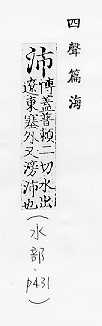 四聲篇海
沛
博蓋普頼二切水出
遼東塞外又滂沛也
(水部．p431)